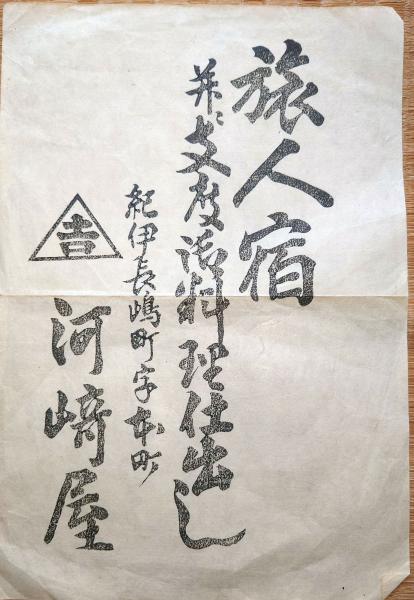 旅人宿
并ニ支度活料理仕出し
紀伊長嶋町字本町
吉
河﨑屋